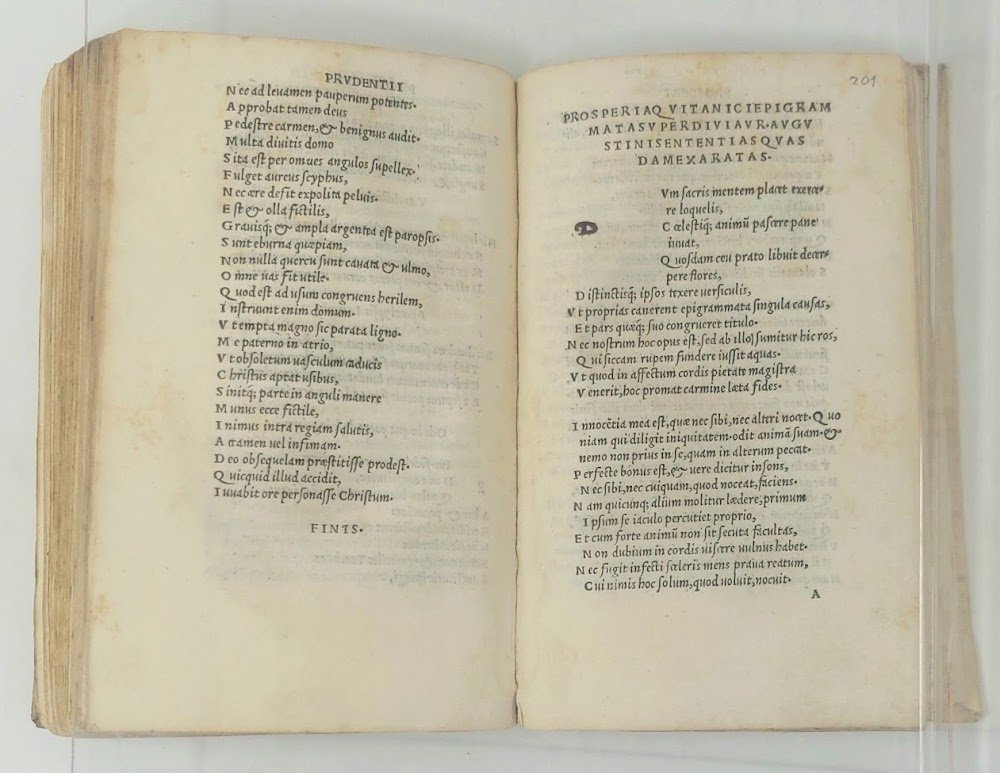 PRVDENTII
N ec ad leuamen pauperum potentes.
A pprobat tamen deus
P edestre carmen, & benignus audit.
M ulta diuitis domo
S ita est per omnes angulos supellex.
F ulget aureus scyphus,
N ec ære defit expolita peluis.
E st & olla fictilis,
G rauisq; & ampla argentea est paropsis.
S unt eburna quæpiam,
N on nulla quercu sunt cauata & ulmo,
O mne uas fit utile.
Q uod est ad usum congruens herilem,
I nstruunt enim domum.
V t empta magno sic parata ligno.
M e paterno in atrio,
V t obsoletum uasculum caducis
C hristus aptat usibus,
S initq; parte in anguli manere
M unus ecce fictile,
I nimus intra regiam salutis,
A ttamen uel infimam.
D eo obsequelam præstitisse prodest.
Q uicquid illud accidit,
I uuabit ore personasse Christum.
FINIS.
201
PROSPERI AQVITANICI EPIGRAM
MATA SVPER DIVI AVR. AVGV
STINI SENTENTIAS QVAS
DAM EXARATAS.
Vm sacris mentem placet exerce-
re loquelis,
C œlestiq; animũ pascere pane
iuuat,
Q uosdam ceu prato libuit decer-
pere flores,
D istinctisq; ipsos texere uersiculis,
V t proprias canerent epigrammata singula causas,
E t pars quæq; suo congrueret titulo.
N ec nostrum hoc opus est, sed ab illo sumitur hic ros,
Q ui siccam rupem fundere iussit aquas.
V t quod in affectum cordis pietate magistra
V enerit, hoc promat carmine læta fides.
I nnocẽtia mea est, quæ nec sibi, nec alteri nocet. Q uo
niam qui diligit iniquitatem. odit animã suam. &
nemo non prius in se, quam in alterum peccat.
P erfecte bonus est, & uere dicitur insons,
N ec sibi, nec cuiquam, quod noceat, faciens.
N am quicunq; alium molitur lædere, primum
I psum se iaculo percutiet proprio,
E t cum forte animũ non sit secuta facultas,
N on dubium in cordis uiscere uulnus habet.
N ec fugit infecti sceleris mens praua reatum,
C ui nimis hoc solum, quod uoluit, nocuit.
A